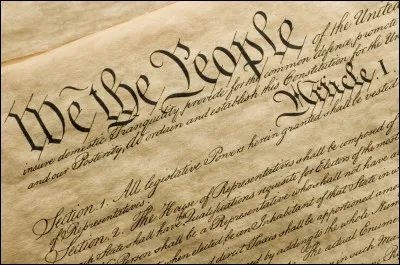 We the People of the United
insure domestic Tranquility, provide for the common defence, promote
and our Posterity, do ordain and establish this Constitution for the Un
Article. I.
Section. 1. All legislative Powers herein granted shall be vested
of Representatives.
Section. 2. The House of Representatives shall be composed of
each State shall have Qualifications requisite for Electors of the most
Person shall be a Representative who shall not have a
when elected be an Inhabitant of that State in w
direct Taxes shall be apportioned amo
by adding to the whole Num
The actual Enume